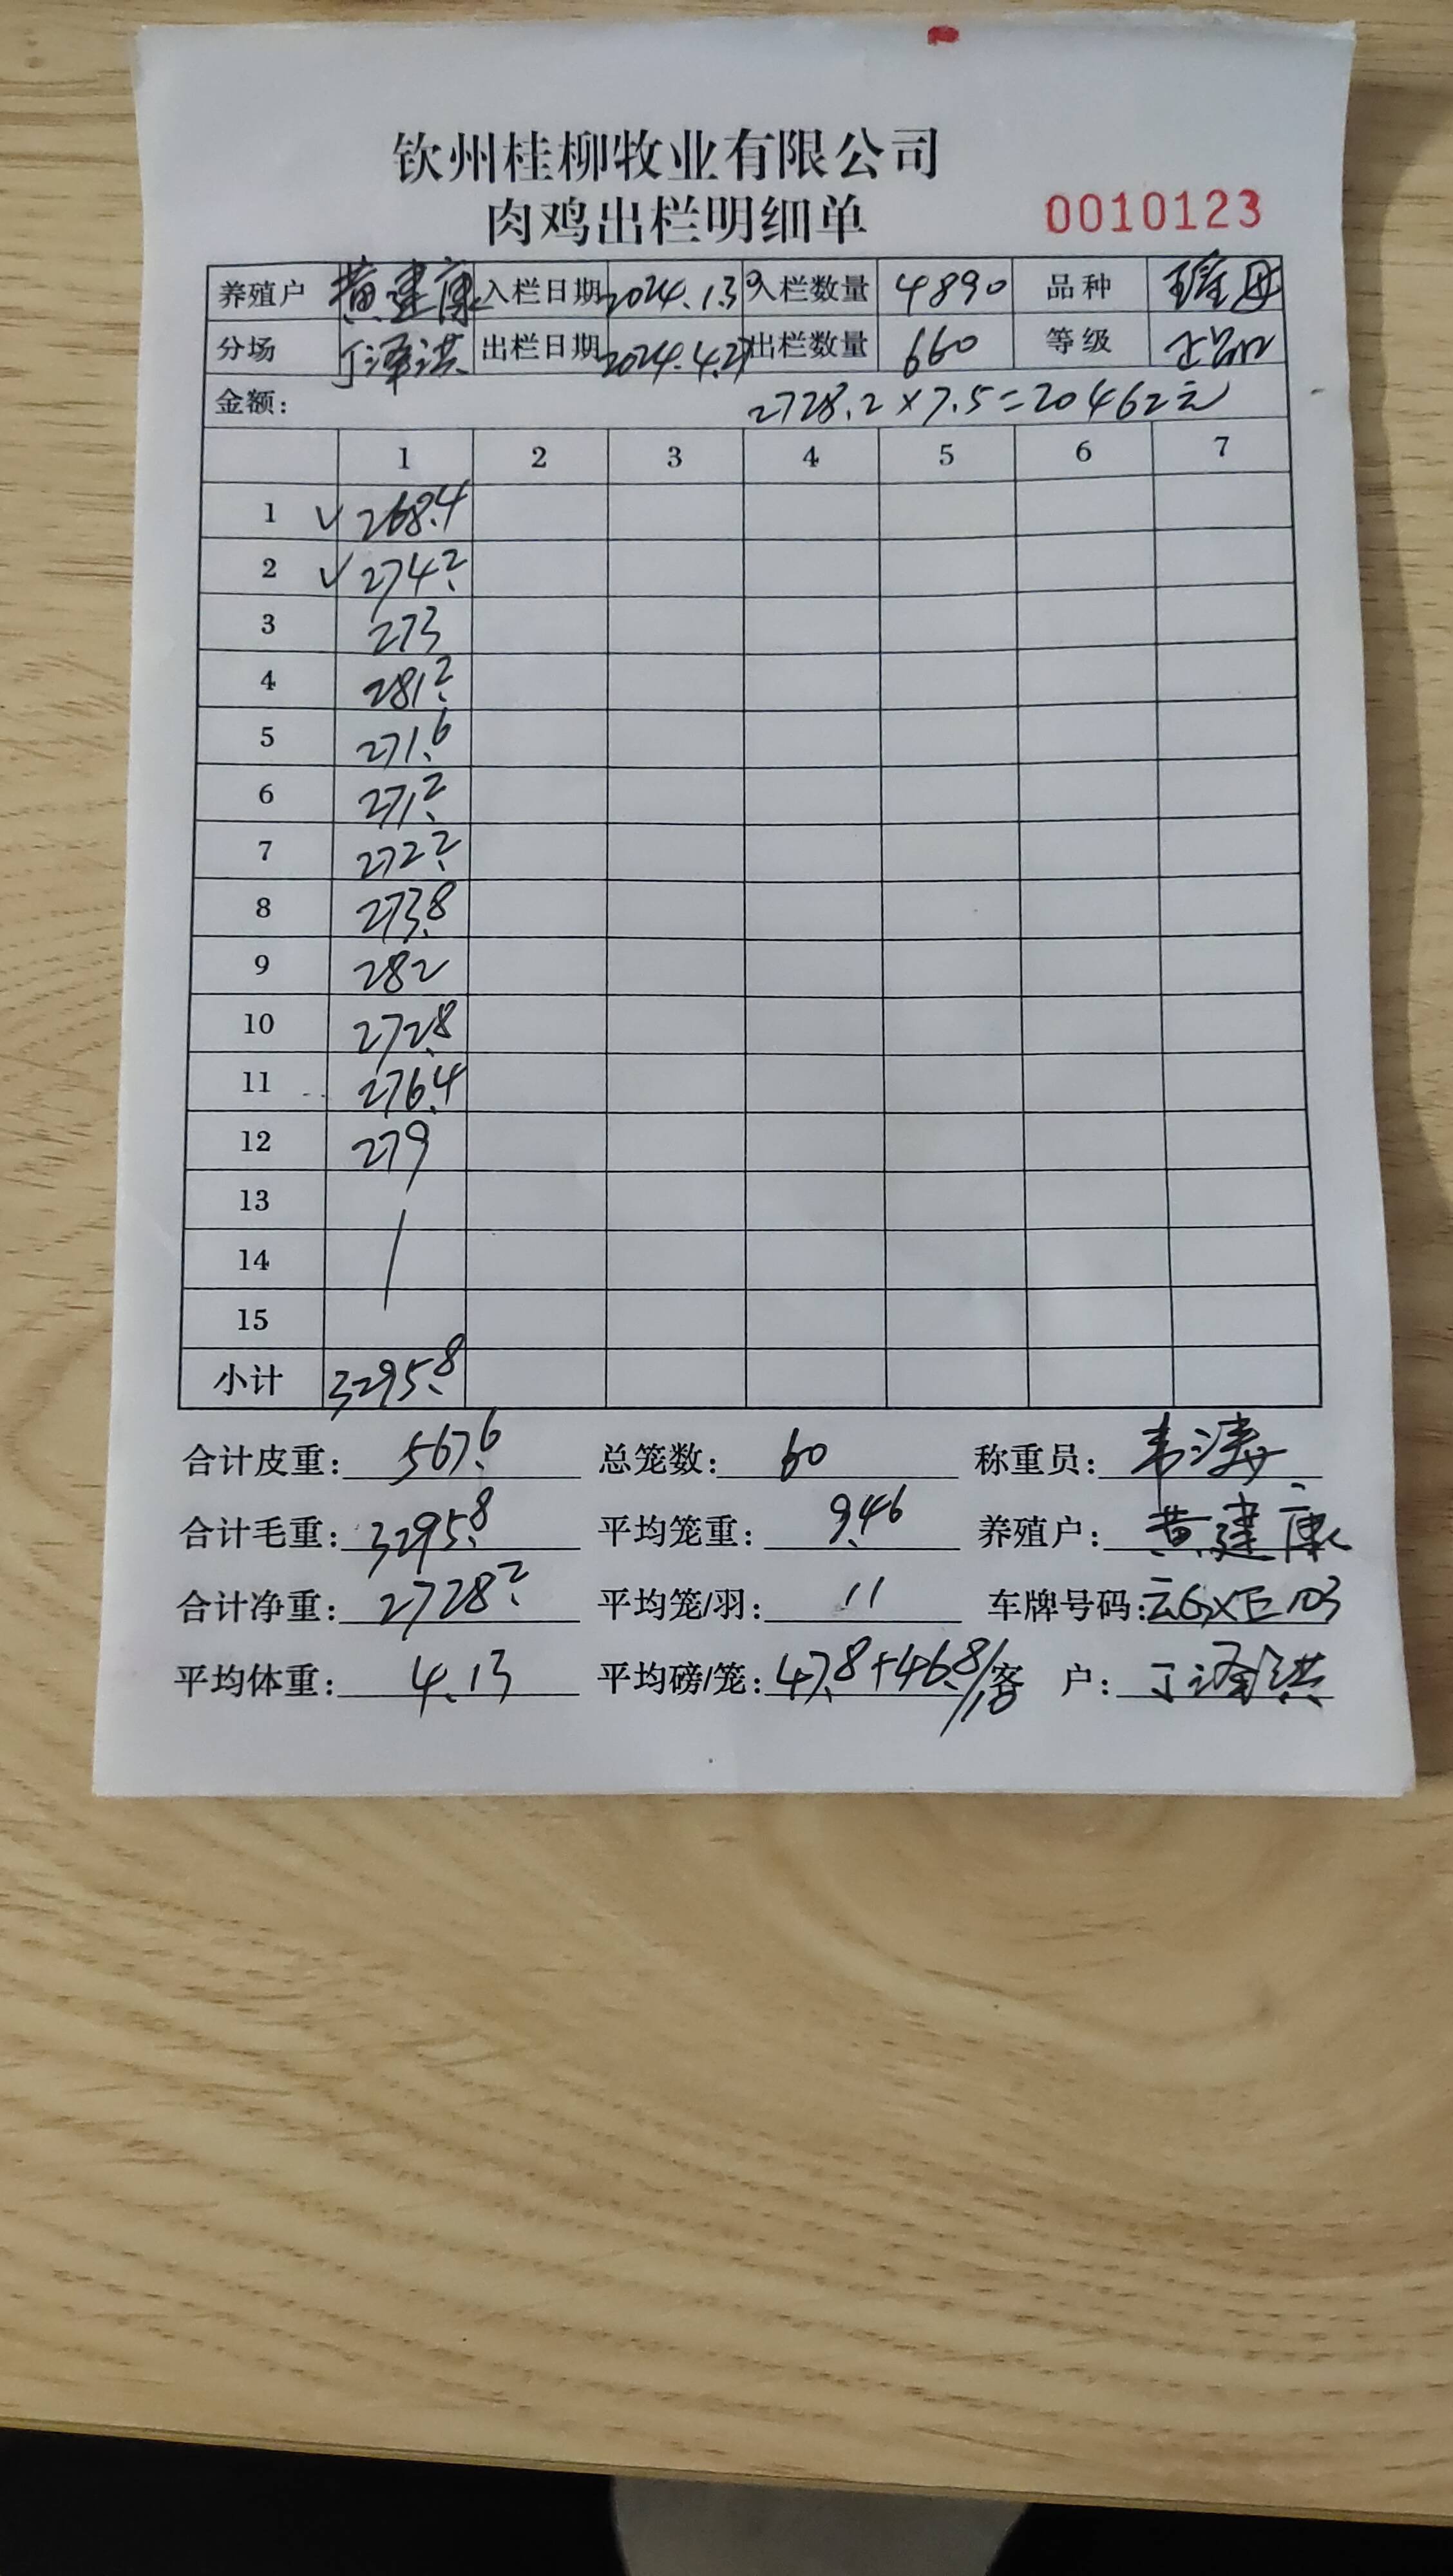 钦州桂柳牧业有限公司
肉鸡出栏明细单 0010123
养殖户 黄建康 入栏日期 2024.1.3 入栏数量 4890 品种
分场 丁泽洪 出栏日期 2024.4.27 出栏数量 660 等级 正品
金额: 2728.2×7.5=20462元
1 2 3 4 5 6 7
1 √ 268.4
2 √ 274.2
3 273
4 281.2
5 271.6
6 271.2
7 272.2
8 273.8
9 282
10 272.8
11 276.4
12 279
13
14
15
小计 3295.8
合计皮重: 567.6 总笼数: 60 称重员: 韦涛
合计毛重: 3295.8 平均笼重: 9.46 养殖户: 黄建康
合计净重: 2728.2 平均笼/羽: 11 车牌号码:
平均体重: 4.13 平均磅/笼: 47.8+46.8/ 客户: 丁泽洪